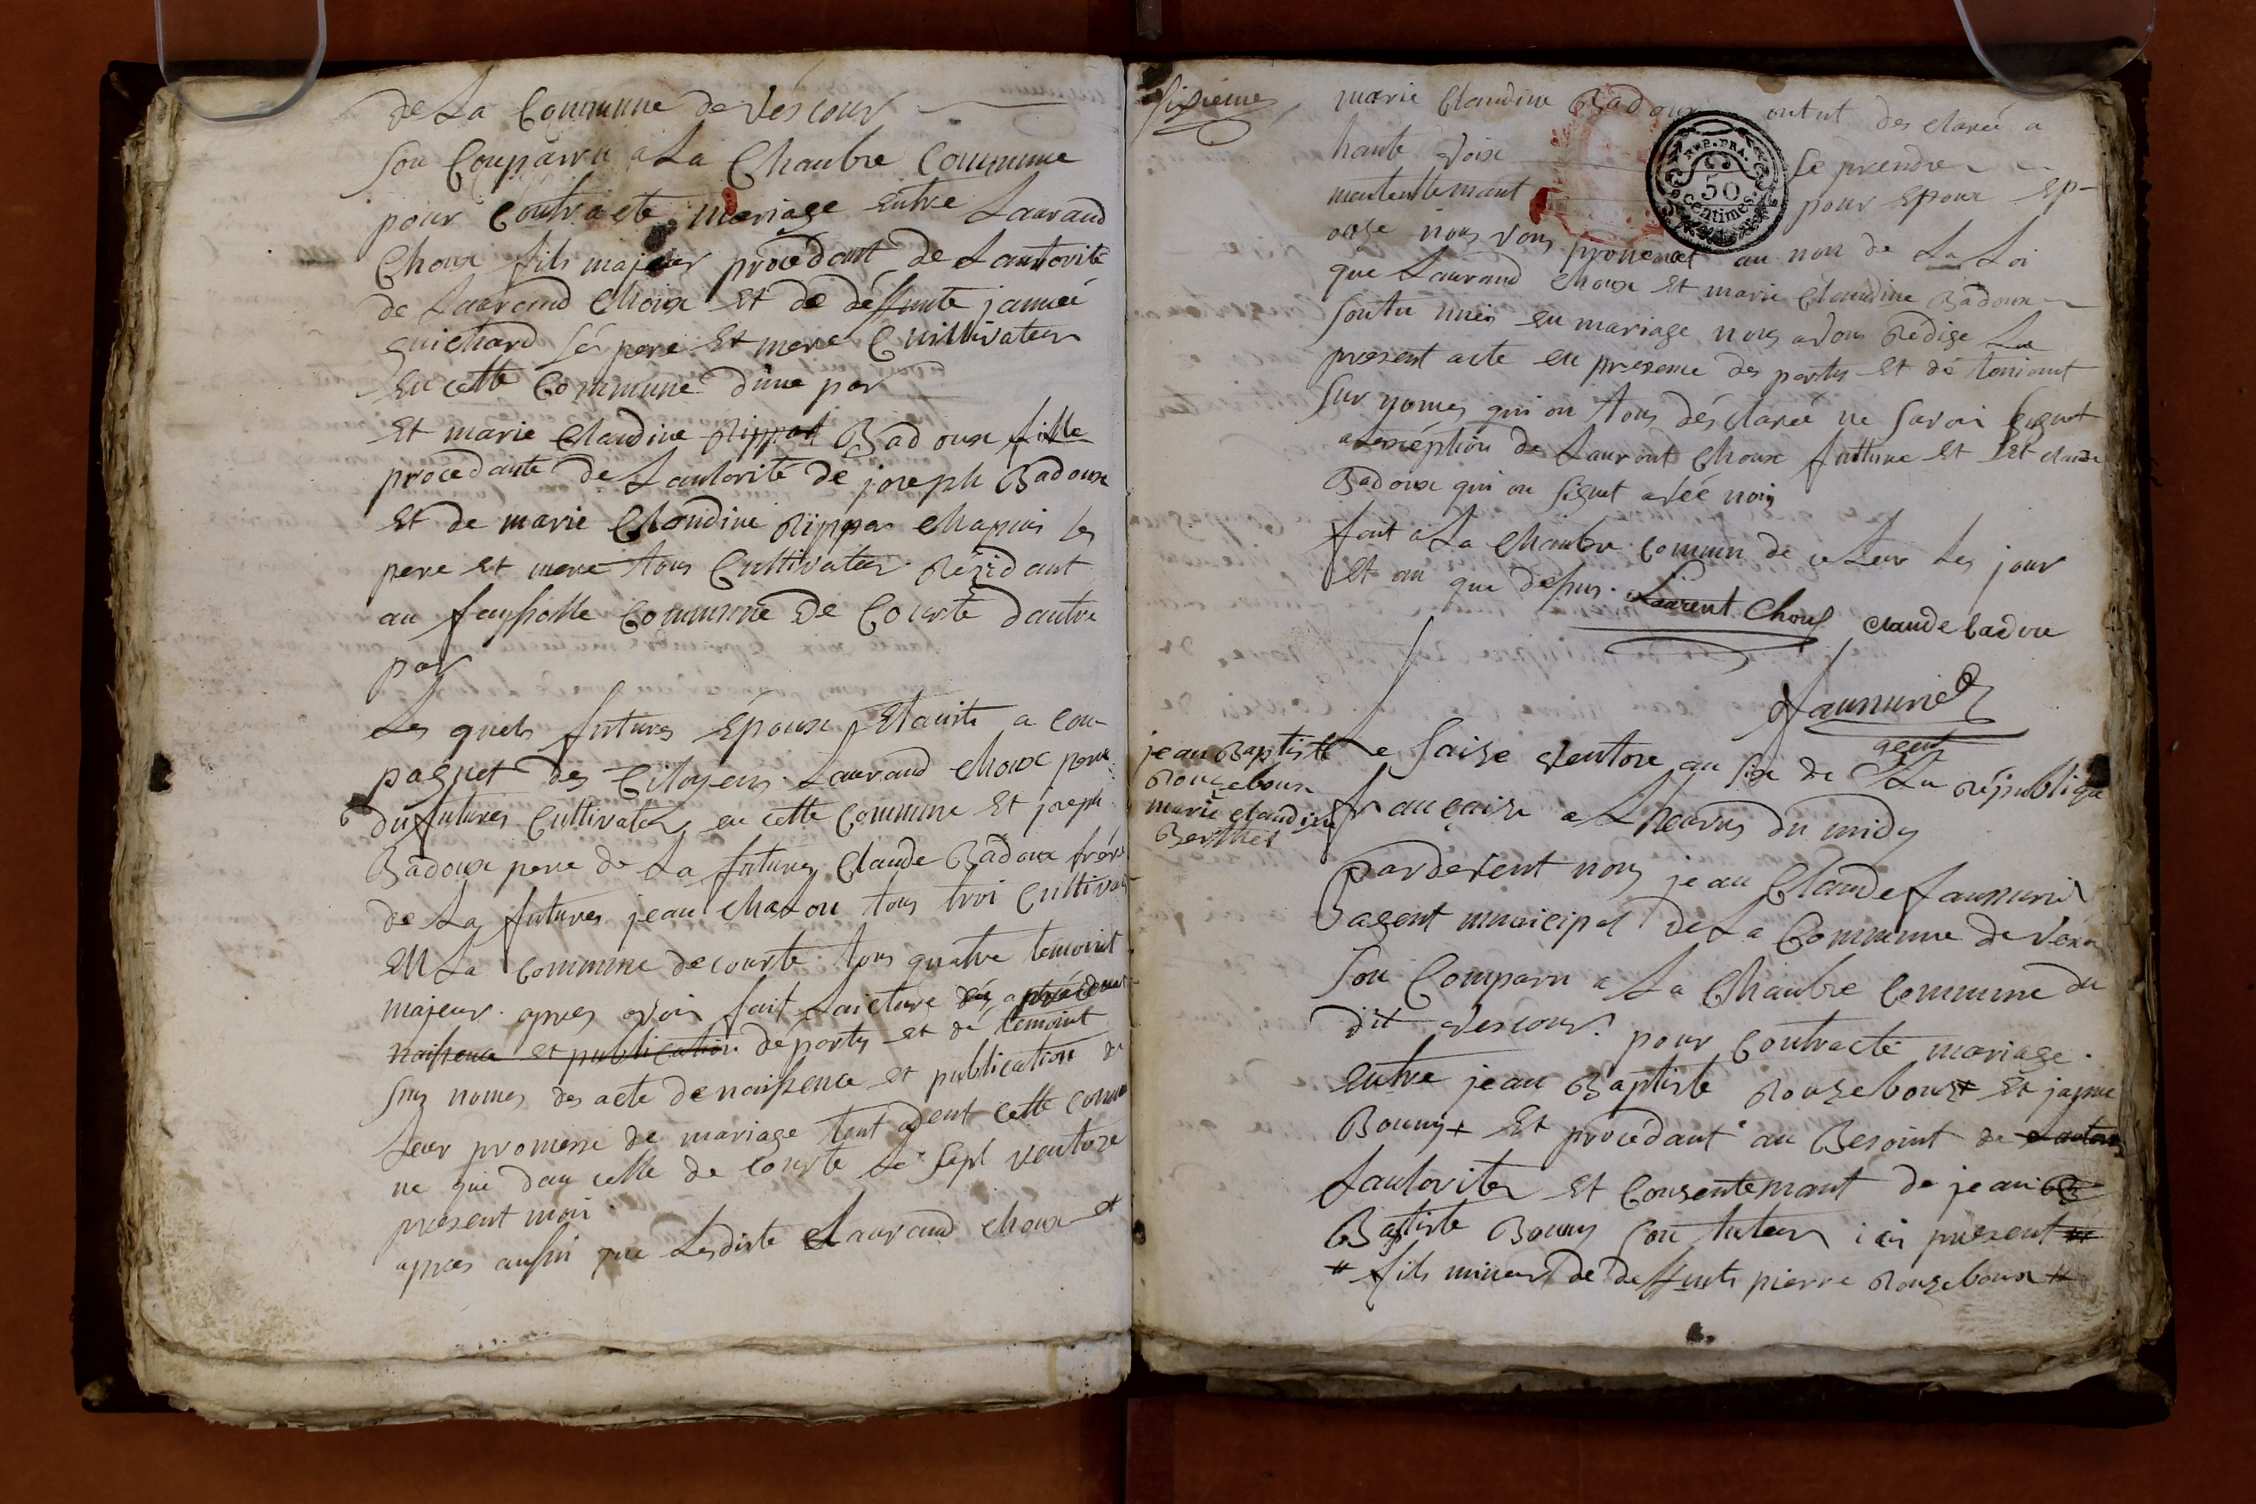 de La Commune de Vescour
Son Comparru a La Chanbre Commune
pour Contracté mariage Entre Laurand
Choux fils majeur procedant de Lautorité
de Laurand Choux Et de deffunte jannée
guichard Sés pere Et mere Cultivateur
En cette Commune dune par
Et marie Claudine Rippas Badoux fille
procedante de Lautorité de joseph Badoux
Et de marie Claudine Rippas Chapuis les
pere Et mere tous Cultivateur Rézidant
au Commune de Courte dautre
par
Les quels futures Epoux Etants a con
pagnet des Citoyens Laurand Choux pere
du futures Cultivateur en cette Commune Et joseph
Badoux pere de La futures Claude Badoux frere
de La futures jean Chalon tous troi Cultivat
En La Commune de courte tous quatre temoint
majeur apres avoir fait Laicture dés
naissence et publication dé partis et dé temoint
sur nomes des acte de naissence et publication de
Leur promesse de mariage tent dent cette commu
ne que dan celle de Courte Le Sept ventose
présent moi
apres aussi que Lesdiste Laurand Choux et
Sixieme
marie Claudine Badoux ontut des claree a
haute voix Se prendre
mentuellemant pour Epoux Ep-
ouze nous vous prononcet au non de La Loi
que Laurand Choux Et marie Claudine Badoux
Sontu unis En mariage nous avons Redige Le
present acte en presence des partis Et dé temoint
Sur nomes qui on tous désclareé ne savoir Signet
a Lexéption de Laurant Choux futture Et Et claude
Badoux qui on Signet avéé nous
fait a La Chanbre Commun de ce Leur Les jour
Et an que désus. Laurent Choux Claude badou
Jaunurié
agent
jean Baptiste
Rouzeboux
marie claudine
Berthet
Le Saize ventose au Six de La Républiqe
française a Lheures du midy
pardevent nous jean Claude Jaunurié
agent municipal de La Commune de Vesco
Son Comparu a La Chanbre Commune du
dit vescour pour Contracté mariage.
Entre jean Baptiste Rouzeboux Et
Bouny + Et procédant au Besoint de
Lautorités Et Consentemant de jean
Batiste Bouny Son tuteur ici présent
# fils mineur de deffunts pierre Rouzeboux #
REP. FRA.
50
centimes.